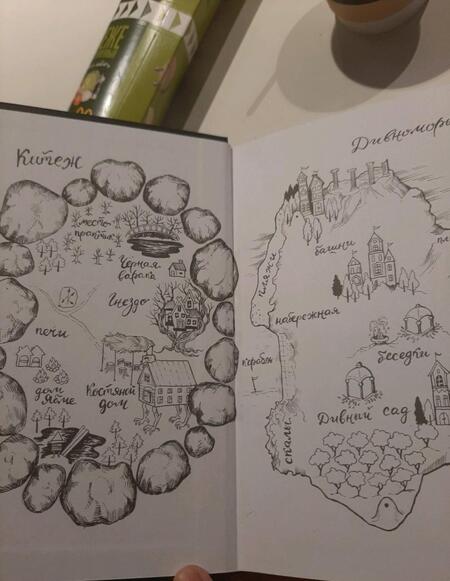 Китеж
место
практик
Черная
варака
Гнездо
печи
дом Ябме
Костяной
дом
Дивноморь
башни
пляжи
набережная
корабль
беседки
Дивний сад
скалы